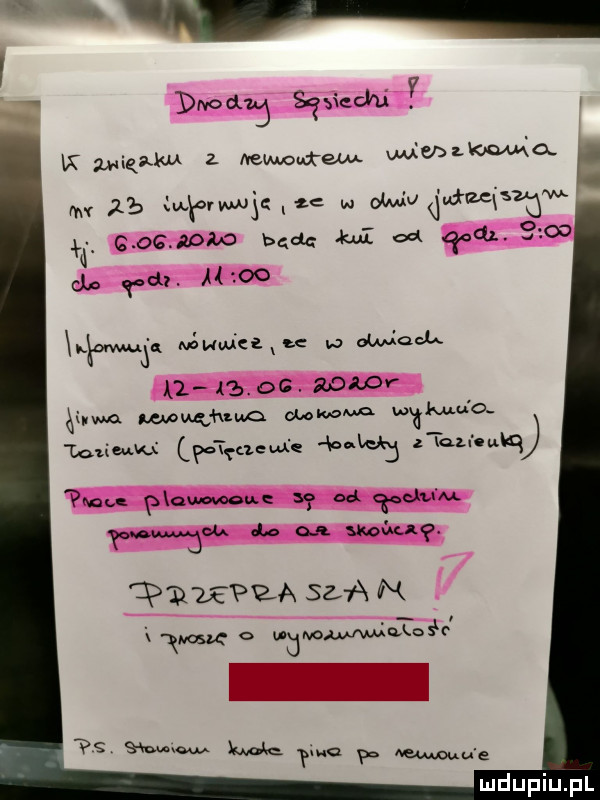 Drodzy Sąsiedzi !
W związku z remontem mieszkania
nr 23 informuję, że w dniu jutrzejszym
tj. 6.06.2020 będę kuł od godz. 9:00
do godz. 11:00
Informuję również, że w dniach
12-13.06.2020r
firma remontująca dokona wykucia
łazienki (połączenie toalety z łazienką)
Prace planowane są od godzin
porannych do aż skończą.
PRZEPRASZAM !
i proszę o wyrozumiałość
P.S. Stawiam kratę piwa po remoncie
mdupiu.pl